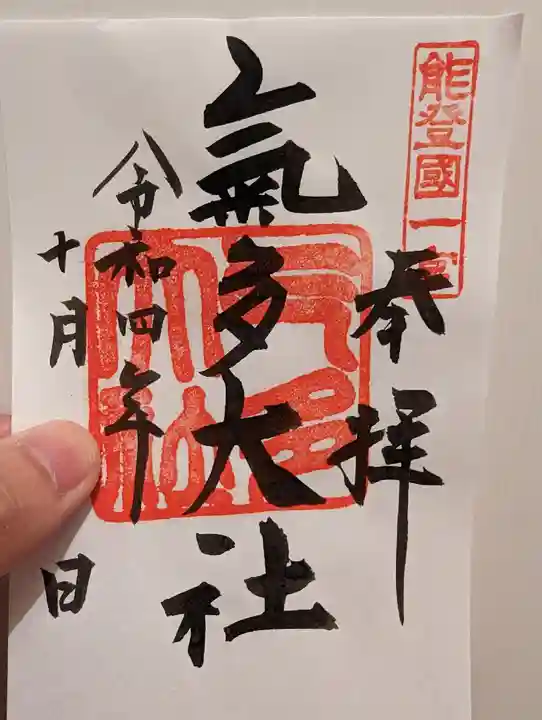 能登國一宮
奉拝
氣多大社
令和四年
十月 日